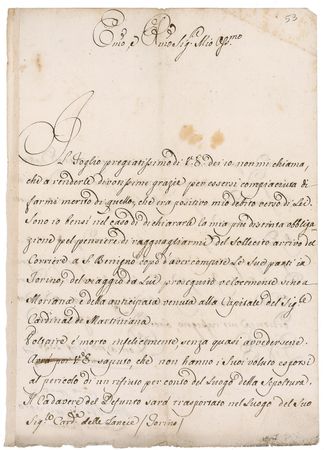 53
Emo, e Rmo Sig.r Mio Ossmo
Il Foglio pregiatissimo di V.E. dei 10 non mi chiama,
che a renderle divotissime grazie per essersi compiaciuta di
farmi merito di quello, che era positivo mio debito verso di Lei.
Sono io bensì nel caso di dichiararle la mia più distinta obbliga
zione pel pensiere di ragguagliarmi del sollecito arrivo del
Corriere a S. Benigno dopo d'aver compite le Sue parti in
Torino, del viaggio da Lui proseguito velocemente sino a
Moriana, e della anticipata venuta alla Capitale del Sig.e
Cardinal de Martiniana.
Voltaire è morto infelicemente senza quasi avvedersene.
V.E. saputo che non hanno i Suoi voluto esporsi
al pericolo di un rifiuto per conto del luogo della Sepoltura.
Il Cadavere del Defunto sarà trasportato nel luogo del suo
Sig.r Card.e delle Lanze / Torino /